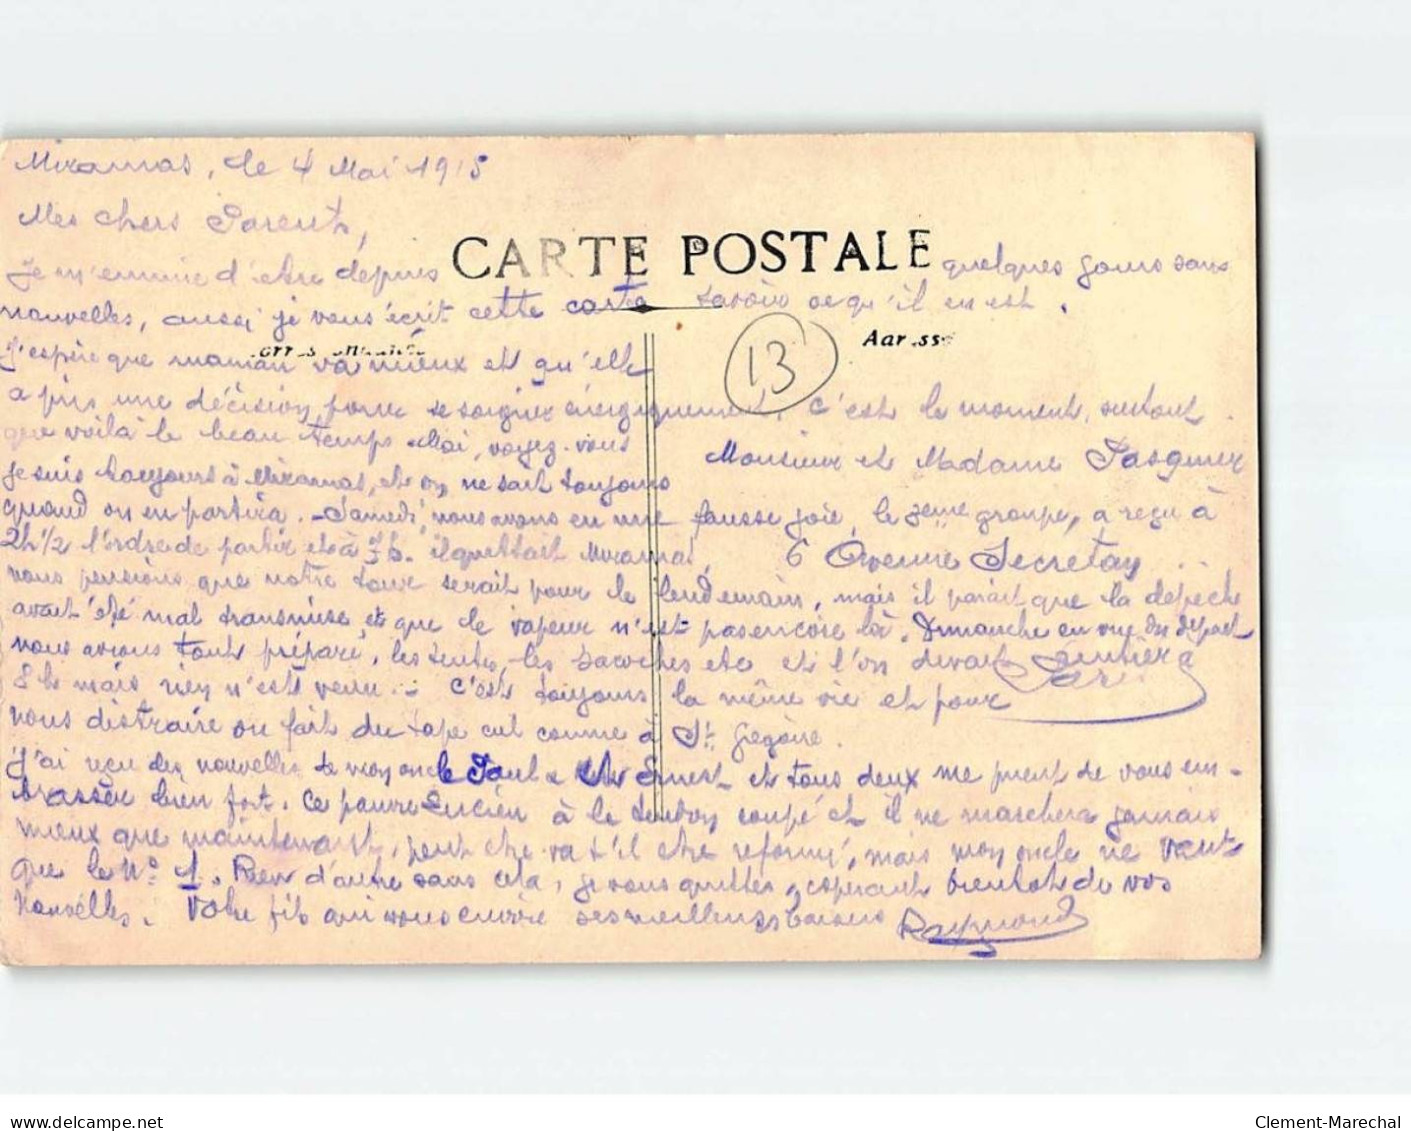 Miramas, le 4 Mai 1915
Mes chers Parents,
CARTE POSTALE
Je m'ennuie d'être depuis quelques jours sans
nouvelles, aussi je vous écrit cette carte savoir ce qu'il en est.
Adresse
13
J'espère que maman va mieux et qu'elle
a pris une décision pour se soigner énergiquement, c'est le moment, surtout
que voilà le beau temps. Moi, voyez-vous
Monsieur et Madame Pasquier
je suis toujours à Miramas, et on ne sait toujours
quand on en partira. Samedi, nous avons eu une fausse joie, le 3ème groupe, a reçu à
2h 1/2 l'ordre de partir et à 7h. il quittait Miramas,
6 Avenue Secretan
nous pensions que notre tour serait pour le lendemain, mais il parait que la dépêche
avait été mal transmise, et que le vapeur n'est pas encore là. Dimanche en vue du départ
nous avions tout préparé, les tentes, les sacoches etc et l'on devait
Paris
8h mais rien n'est venu... c'est toujours la même vie et pour
nous distraire on fait du tape cul comme à St Grégoire.
J'ai reçu des nouvelles de mon oncle Paul & Ernest et tous deux me prient de vous em-
brasser bien fort. Ce pauvre Lucien à le tendon coupé et il ne marchera jamais
mieux que maintenant, peut être va t'il être reformé, mais mon oncle ne vaut
que le N° 1. Rien d'autre sans cela, je vous quitte espérant bientôt de vos
nouvelles. Votre fils qui vous envoie ses meilleurs baisers Raymond
delcampe.net
Clement-Marechal